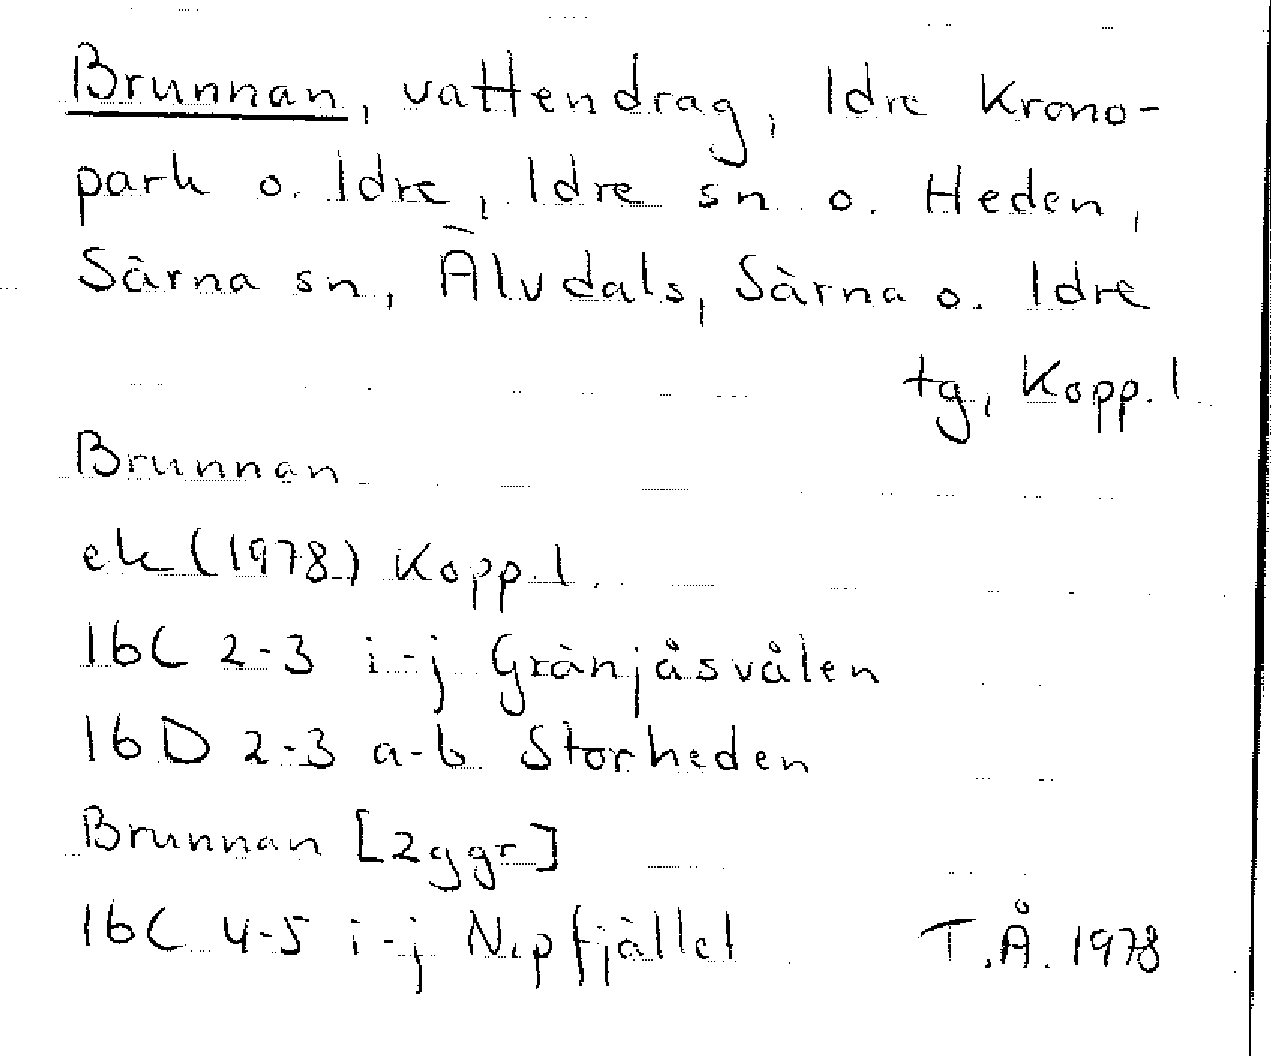 Brunnan, vattendrag, Idre Krono-
park o. Idre, Idre sn o. Heden,
Särna sn, Älvdals, Särna o. Idre
tg, Kopp. l
Brunnan
ek (1978) Kopp. l.
16C 2-3 i-j Gränjåsvålen
16D 2-3 a-b Storheden
Brunnan [2ggr]
16C 4-5 i-j Nipfjället
T.Å. 1978